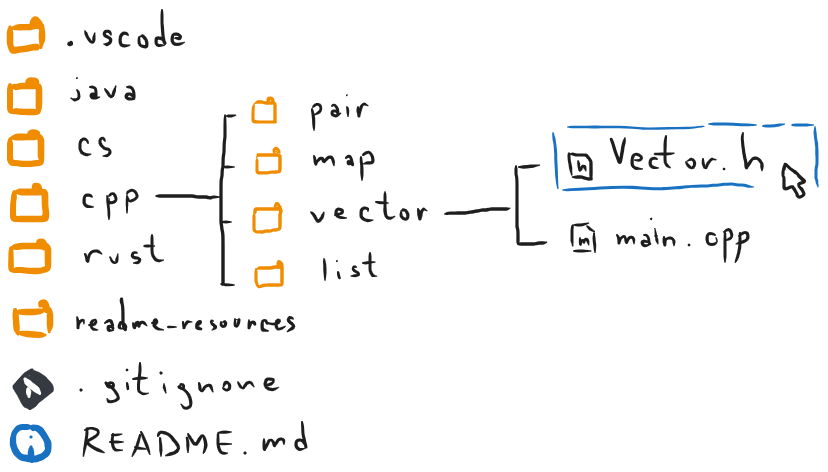 .vscode
java
cs
cpp
rust
readme-resources
.gitignone
README.md
pair
map
vector
list
h Vector.h
m main.cpp